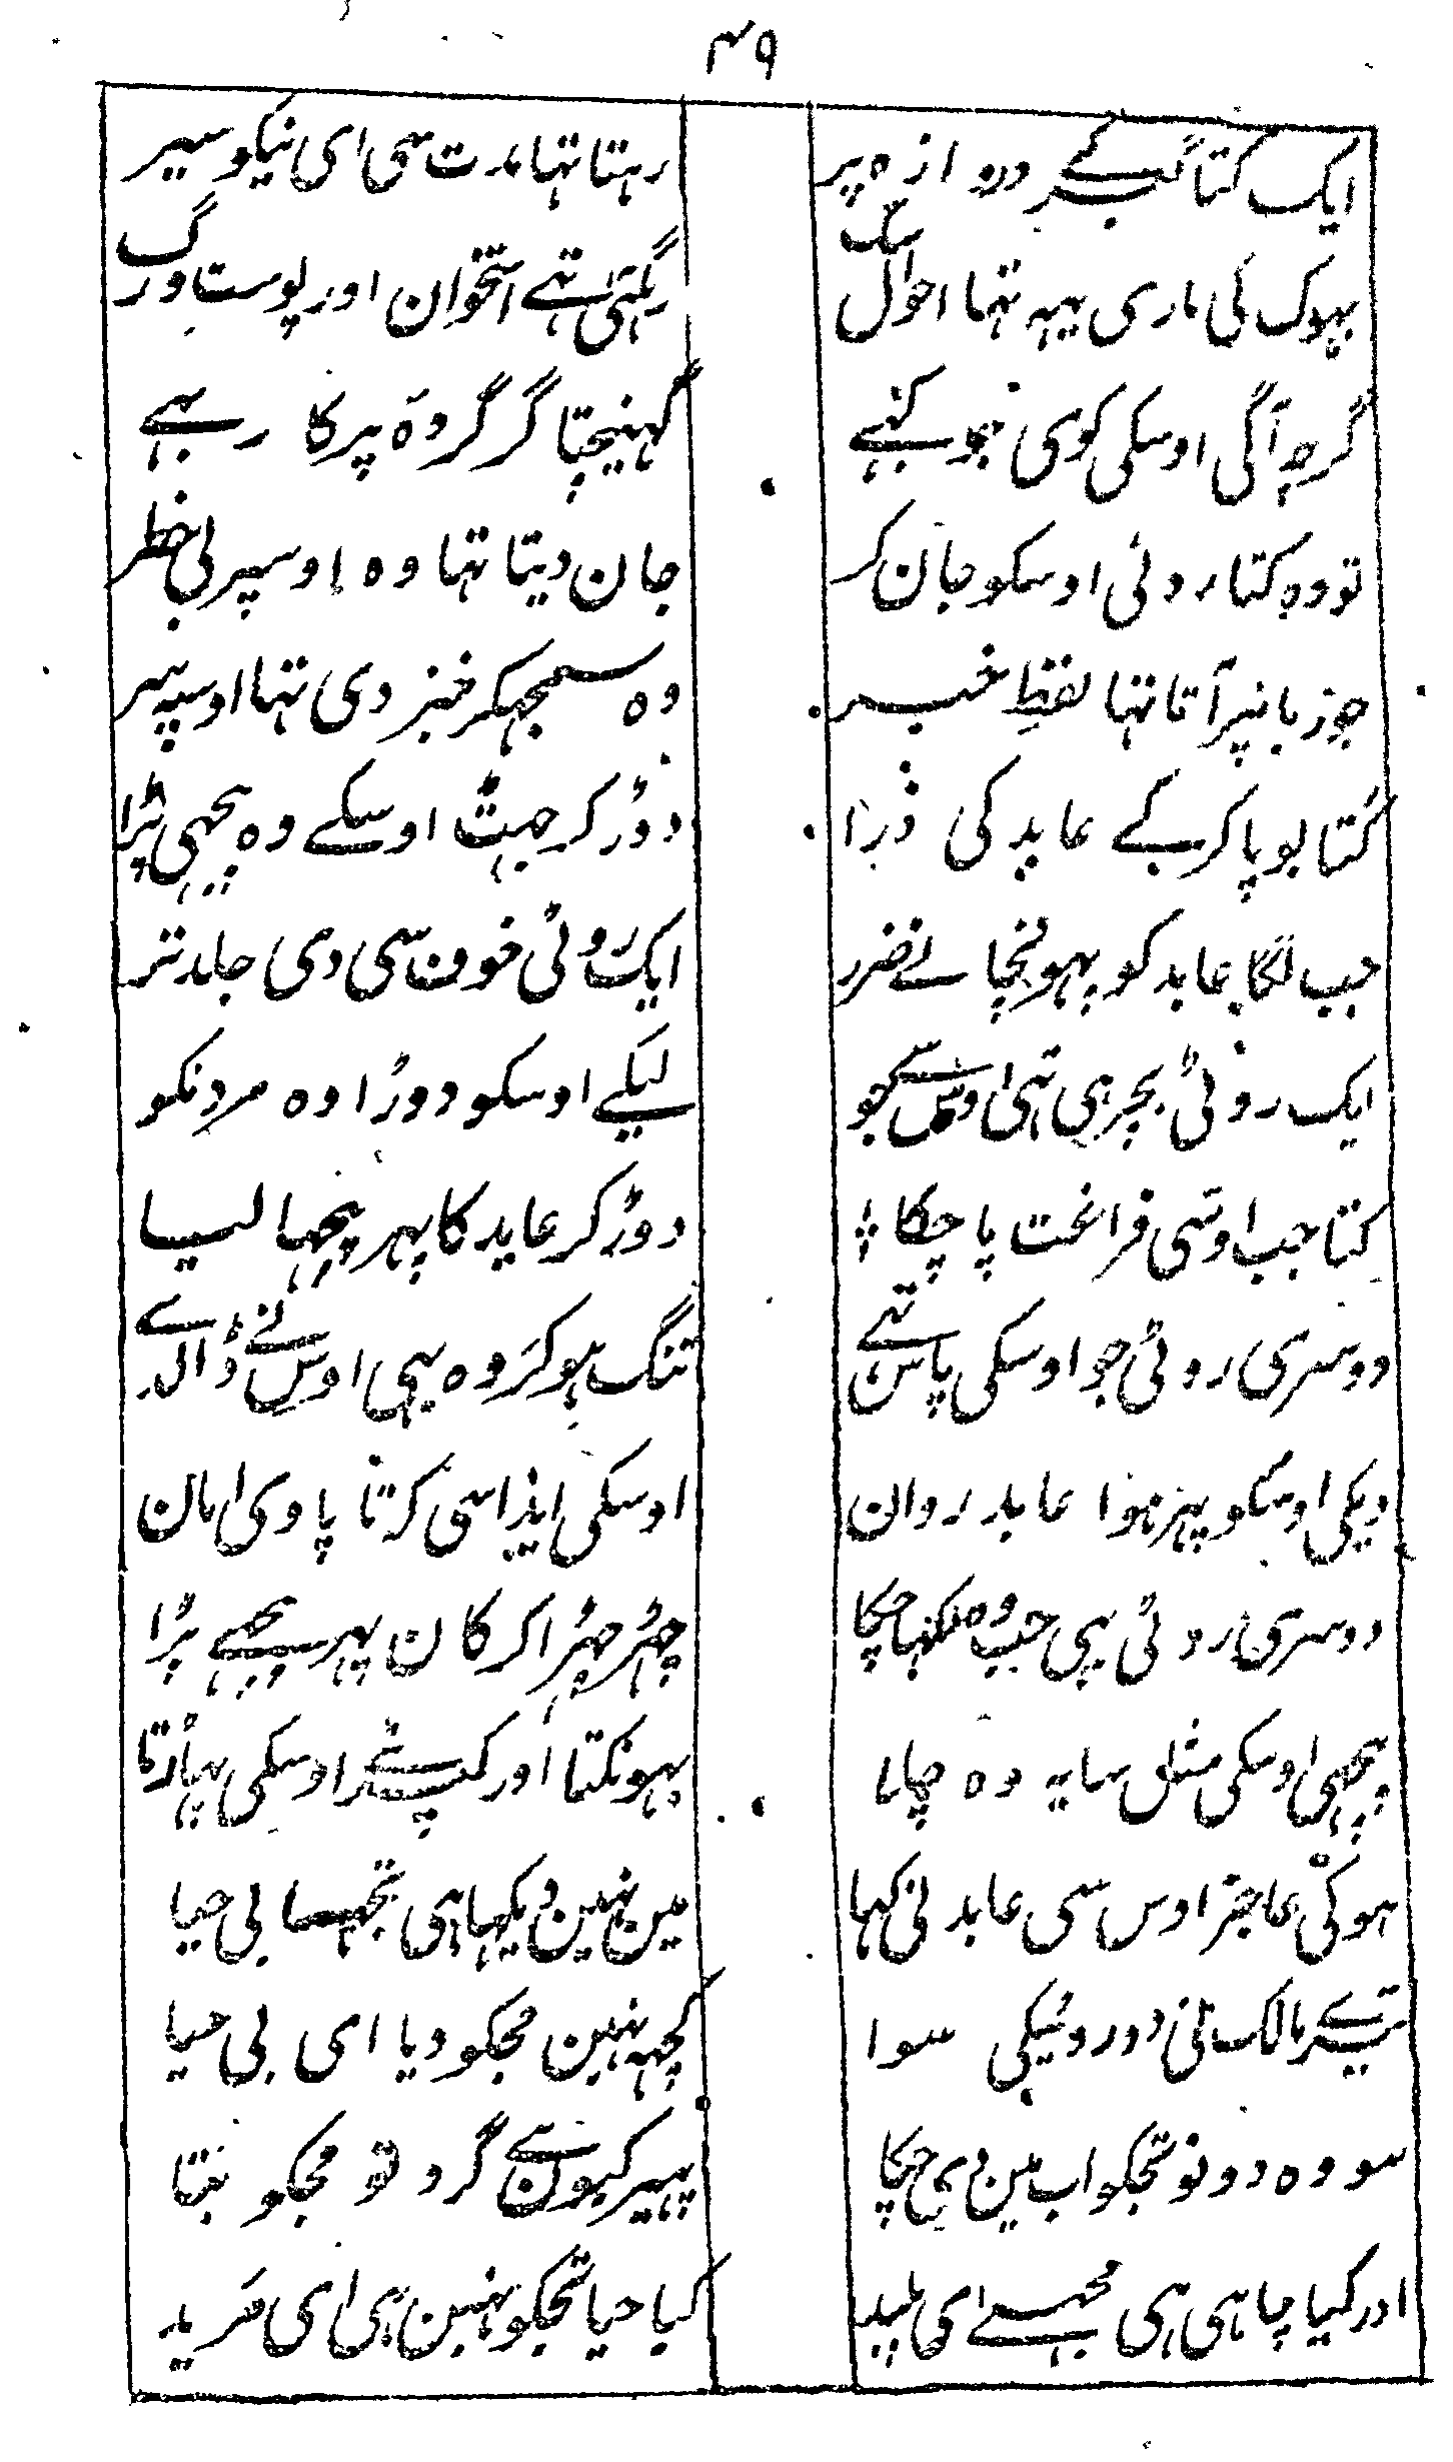 ۴۹
ایک کتا گبر کے دروازہ پر رہتا تہا مدت سی ای نیکو سیر
بہوک کی ماری یہہ تہا احوال سگ رہگئی تہے استخوان اور پوست و رگ
گرچہ آگی اوسکی کوی کہنیچتا گر گردہ پرکار ہے
تو وہ کتا روٹی اوسکو جان کر جان دیتا تہا وہ اوسپر بی خطر
جو زبانپر آتا تہا لفظِ خبر وہ سمجہکر خبز دی تہا اوسپہ سر
کتا بو پا کر کے عابد کی ذرا دوڑ کر جہٹ اوسکے وہ پیچہی پڑا
جب لگا عابد کو پہونچانے ضرر ایک روٹی خوف سی دی جلد تر
ایک روٹی بچرہی تہی اوس کی جو لیکے اوسکو دوڑا وہ مرد نکو
کتا جب اوسی فراغت پا چکا دوڑ کر عابد کا پہر پیچہا لیا
دوسری روٹی جو اوسکی پاس تہے تنگ ہو کر وہ بہی اوس نے ڈالدے
دیکی اوسکو پہر ہوا عابد روان اوسکی ایذا سی کرتا پاوی امان
دوسری روٹی بہی جب وہ کہا چکا جہڑ جہڑا کر کان پہر پیچہے پڑا
پیچہی اوسکی مثل سایہ وہ چلا بہونکتا اور کپڑے اوسکی پہاڑتا
ہوکی عاجز اوس سی عابد نی کہا مین نہین دیکہا ہی تجہسا بی حیا
تیرے مالک نی دو روٹیکی سوا کچہہ نہین مجکو دیا ای بی حیا
سو وہ دونو تجکو اب مین دی چکا پہیر کیون ہے گرد تو مجکو بتا
اور کیا چاہی ہی مجہسے ای پلید کیا حیا تجکو نہین ہی ای مرید